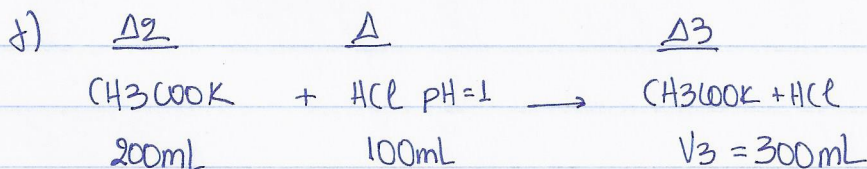 γ) Δ2 Δ Δ3
CH3COOK + HCl pH=1 → CH3COOK + HCl
200mL 100mL V3 = 300mL